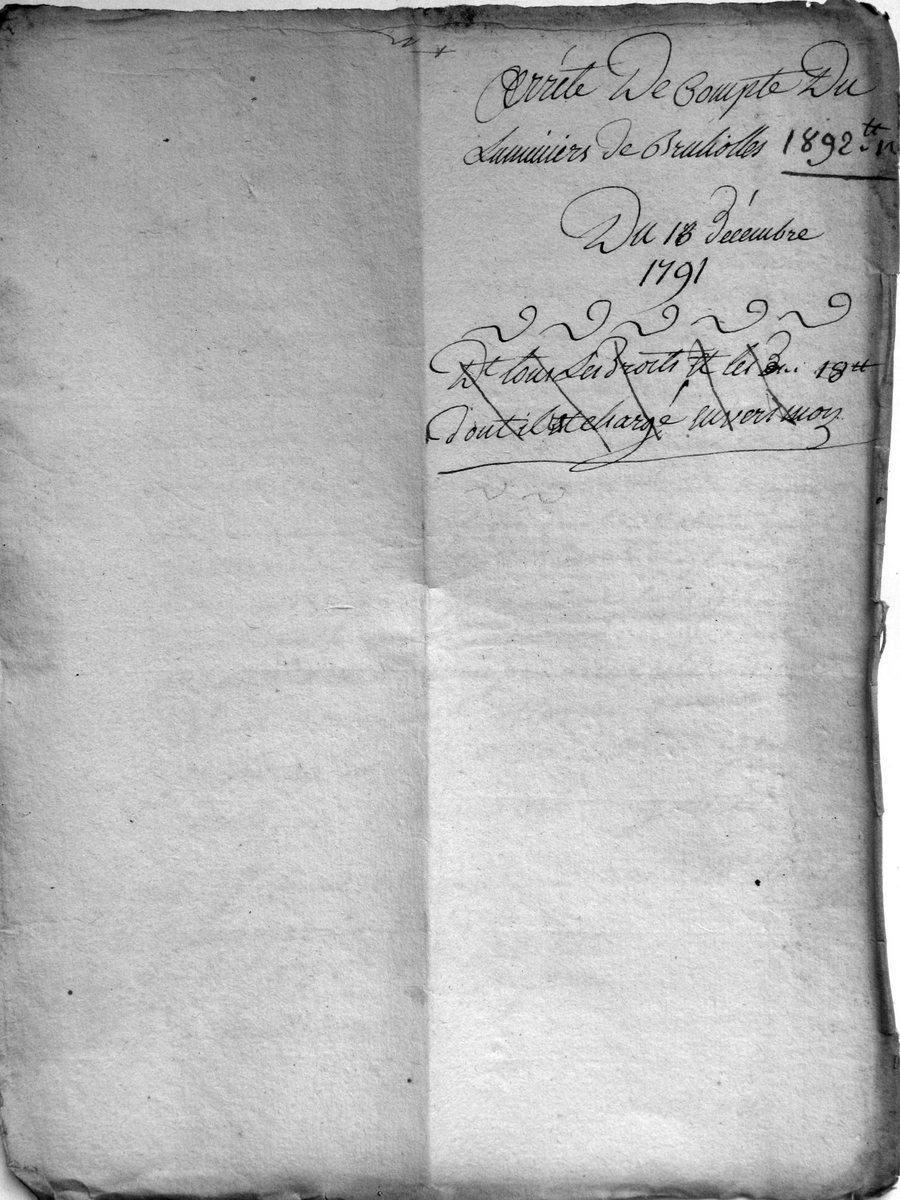 Arrété De Compte Du
Luminiers de Brulliolles 1892 tt
Du 18 Décembre
1791
Dt tous Les Droits et les 18 tt
dont il est chargé envers moy